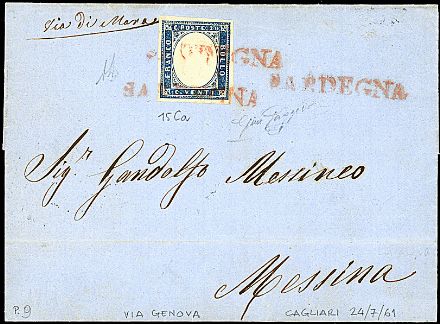 Via di Mare
C. POSTE 20
FRANCO
BOLLO
C. VENTI
SARDEGNA
SARDEGNA
SARDEGNA
15Ca
Sig.r Gandolfo Messineo
Messina
P.9
VIA GENOVA
CAGLIARI 24/7/61